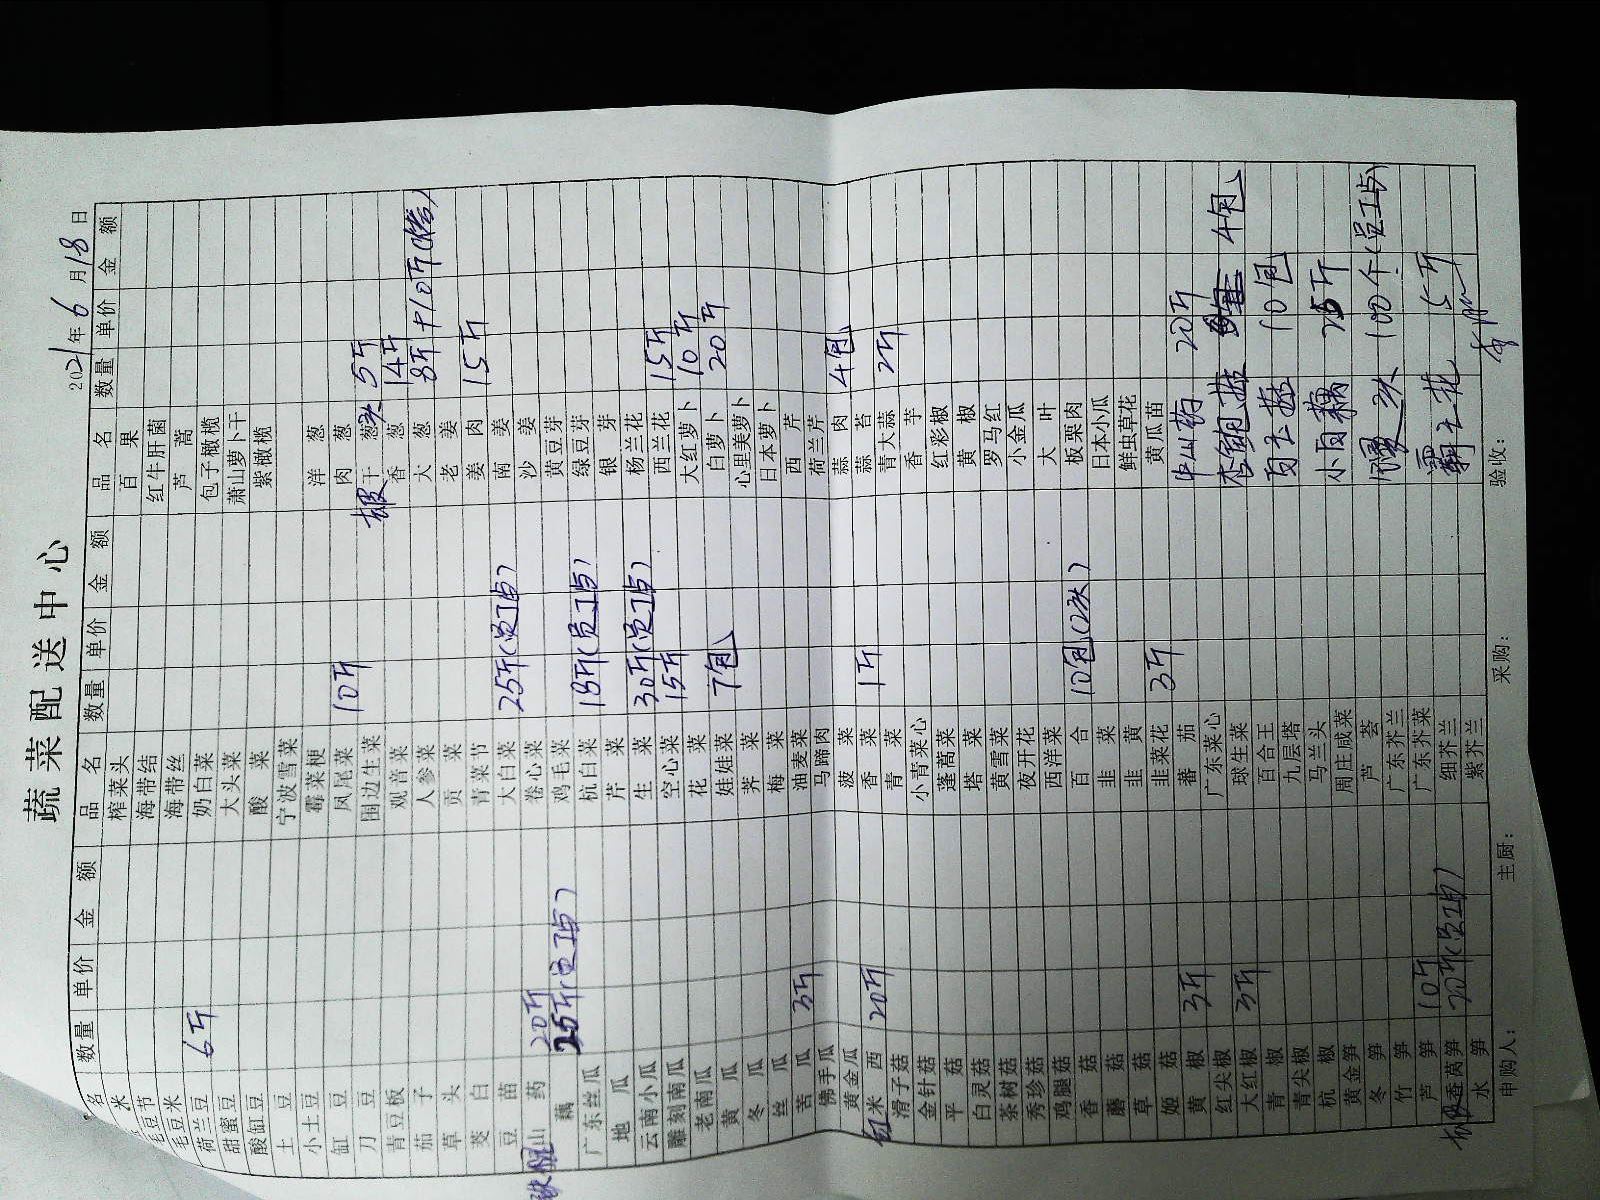 蔬菜配送中心
2021年6月18日
名 数量 单价 金额 品名 数量 单价 金额 品名 数量 单价 金额
米 榨菜头 百果
毛豆节 海带结 红牛肝菌
毛豆米 海带丝 芦蒿
荷兰豆 6斤 奶白菜 包子橄榄
甜蜜豆 大头菜 萧山萝卜干
酸豇豆 酸菜 紫橄榄
土豆 宁波雪菜
小土豆 霉菜梗 洋葱
豇豆 凤尾菜 10斤 肉葱
刀豆 围边生菜 干葱头 5斤
青豆板 观音菜 香葱 14斤
茄子 人参菜 大葱 8斤+10斤
草头 贡菜 老姜
茭白 青菜节 姜肉 15斤
豆苗 大白菜 25斤(员工点) 南姜
铁棍山药 20斤 卷心菜 沙姜
藕 25斤(员工点) 鸡毛菜 黄豆芽
广东丝瓜 杭白菜 (员工点) 绿豆芽
地瓜 芹菜 银芽
云南小瓜 生菜 30斤(员工点) 杨兰花
雕刻南瓜 空心菜 15斤 西兰花 15斤
老南瓜 花菜 大红萝卜 10斤
黄瓜 娃娃菜 7包 白萝卜 20斤
冬瓜 荠菜 心里美萝卜
丝瓜 梅菜 日本萝卜
苦瓜 3斤 油麦菜 西芹
佛手瓜 马蹄肉 荷兰芹
黄金瓜 菠菜 蒜肉 4包
红米西 20斤 香菜 1斤 蒜苔
滑子菇 青菜 青大蒜 2斤
金针菇 小青菜心 香芋
平菇 蓬蒿菜 红彩椒
白灵菇 塔菜 黄椒
茶树菇 黄雪菜 罗马红
秀珍菇 夜开花 小金瓜
鸡腿菇 西洋菜 大叶
香菇 百合 10包(2次) 板栗肉
蘑菇 韭菜 日本小瓜
草菇 韭黄 鲜虫草花
姬菇 韭菜花 3斤 黄瓜苗
黄椒 3斤 番茄 20斤
红尖椒 广东菜心 杏鲍菇 4包
大红椒 3斤 球生菜
青椒 百合王 白玉菇 10包
青尖椒 九层塔
杭椒 马兰头 小白藕 25斤
黄金笋 周庄咸菜
冬笋 芦荟 馒头 100个(员工点)
竹笋 广东芥兰
芦笋 10斤 广东芥菜 霸王花 15斤
香莴笋 20斤(员工点) 细芥兰
水笋 紫芥兰
申购人: 主厨: 采购: 验收: